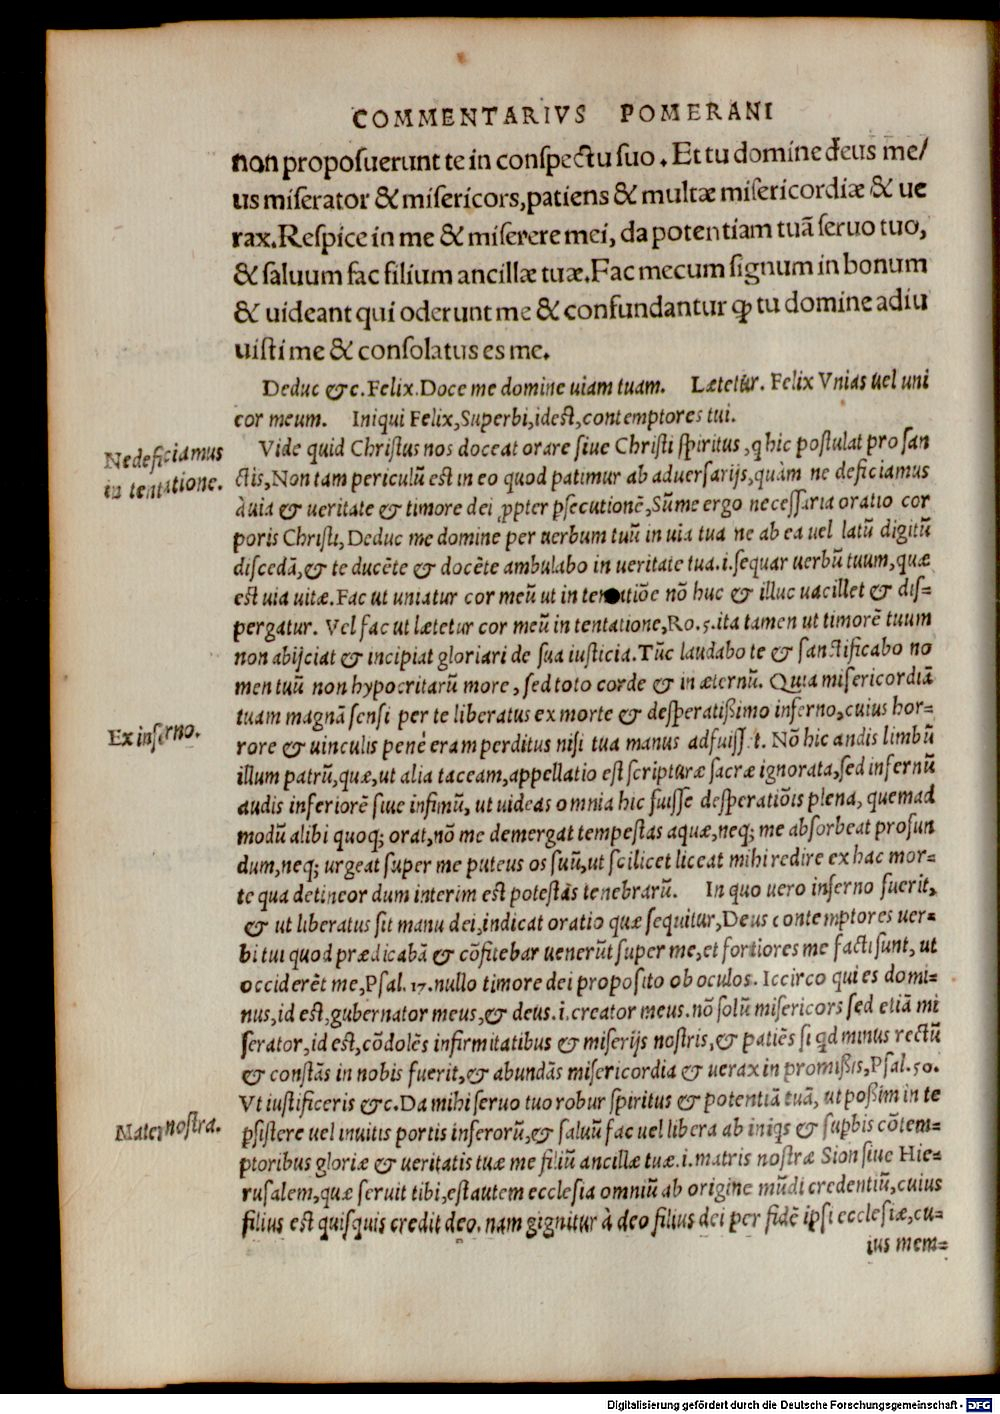 COMMENTARIVS POMERANI
non proposuerunt te in conspectu suo. Et tu domine deus me/
us miserator & misericors, patiens & multæ misericordiæ & ue
rax. Respice in me & miserere mei, da potentiam tuā seruo tuo,
& saluum fac filium ancillæ tuæ. Fac mecum signum in bonum
& uideant qui oderunt me & confundantur ꝙ tu domine adiu
uisti me & consolatus es me.
Deduc &c. Felix. Doce me domine uiam tuam. Lætetur. Felix Vnias uel uni
cor meum. Iniqui Felix, Superbi, id est, contemptores tui.
Ne deficiamus
in tentatione.
Vide quid Christus nos doceat orare siue Christi spiritus, q hic postulat pro san
ctis, Non tam periculū est in eo quod patimur ab aduersarijs, quàm ne deficiamus
à uia & ueritate & timore dei ꝓpter ꝑsecutionē, Sūme ergo necessaria oratio cor
poris Christi, Deduc me domine per uerbum tuū in uia tua ne ab ea uel latū digitū
discedā, & te ducēte & docēte ambulabo in ueritate tua .i. sequar uerbū tuum, quæ
est uia uitæ. Fac ut uniatur cor meū ut in tentatiōe nō huc & illuc uacillet & dis-
pergatur. Vel fac ut lætetur cor meū in tentatione, Ro. 5. ita tamen ut timorē tuum
non abijciat & incipiat gloriari de sua iusticia. Tūc laudabo te & sanctificabo no
men tuū non hypocritarū more, sed toto corde & in æternū. Quia misericordiā
tuam magnā sensi per te liberatus ex morte & desperatißimo inferno, cuius hor-
Ex inferno.
rore & uinculis penè eram perditus nisi tua manus adfuisset. Nō hic audis limbū
illum patrū, quæ, ut alia taceam, appellatio est scripturæ sacræ ignorata, sed infernū
audis inferiorē siue infimū, ut uideas omnia hic fuisse desperatiōis plena, quemad
modū alibi quoq; orat, nō me demergat tempestas aquæ, neq; me absorbeat profun
dum, neq; urgeat super me puteus os suū, ut scilicet liceat mihi redire ex hac mor-
te qua detineor dum interim est potestas tenebrarū. In quo uero inferno fuerit,
& ut liberatus sit manu dei, indicat oratio quæ sequitur, Deus contemptores uer-
bi tui quod prædicabā & cōfitebar uenerūt super me, et fortiores me facti sunt, ut
occiderēt me, Psal. 17. nullo timore dei proposito ob oculos. Iccirco qui es domi-
nus, id est, gubernator meus, & deus .i. creator meus. nō solū misericors sed etiā mi
serator, id est, cōdolēs infirmitatibus & miserijs nostris, & patiēs si qd minus rectū
& constās in nobis fuerit, & abundās misericordia & uerax in promißis, Psal. 50.
Vt iustificeris &c. Da mihi seruo tuo robur spiritus & potentiā tuā, ut poßim in te
Mater nostra.
ꝑsistere uel inuitis portis inferorū, & saluū fac uel libera ab iniqs & supbis cōtem-
ptoribus gloriæ & ueritatis tuæ me filiū ancillæ tuæ .i. matris nostræ Sion siue Hie-
rusalem, quæ seruit tibi, est autem ecclesia omniū ab origine mūdi credentiū, cuius
filius est quisquis credit deo. nam gignitur à deo filius dei per fidē ipsi ecclesiæ, cu-
ius mem-
Digitalisierung gefördert durch die Deutsche Forschungsgemeinschaft - DFG